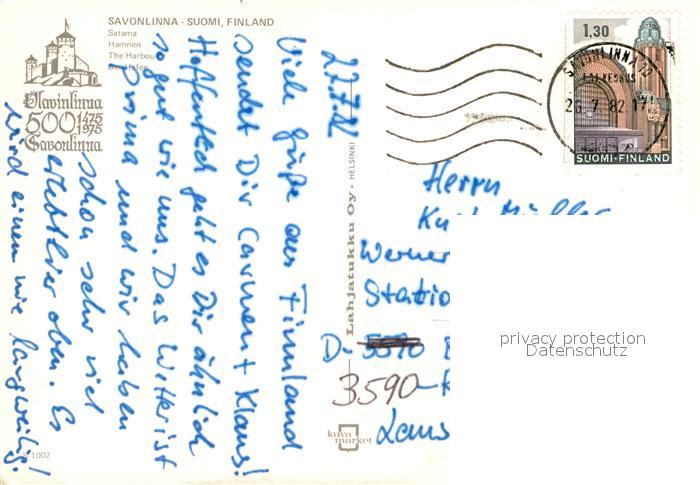 SAVONLINNA - SUOMI, FINLAND
Satama
Hamnen
The Harbour
Der Hafen
Olavinlinna
500 1475
1975
Savonlinna
22.7.82
Viele Grüße aus Finnland
sendet Dir Carmen + Klaus!
Hoffentlich geht es Dir ähnlich
so gut wie uns. Das Wetter ist
prima und wir haben
schon sehr viel
erlebt hier oben. Es
wird einem nie langweilig!
1002
Lahjatukku Oy. HELSINKI
kuva
market
1,30
SUOMI-FINLAND
SAVONLINNA
26.7.82.17
Herrn
Werner
Statio
D-5590
3590-
privacy protection
Datenschutz